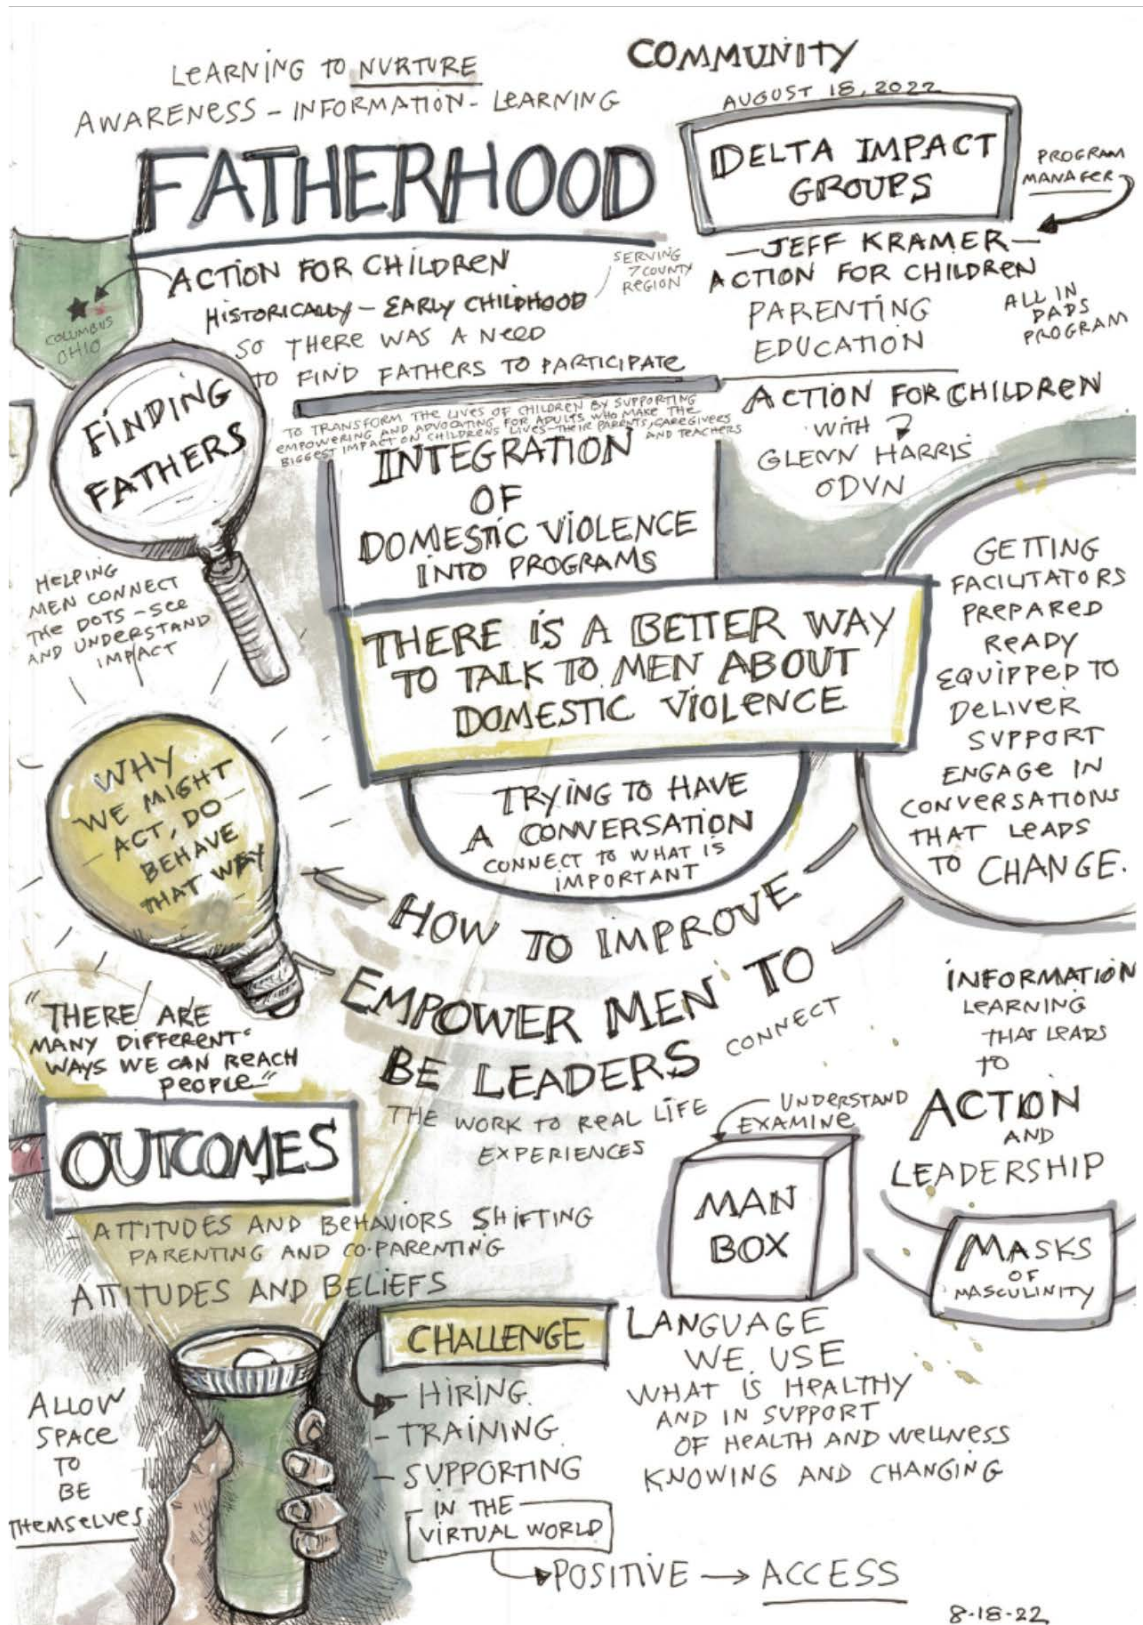 LEARNING TO NURTURE
AWARENESS - INFORMATION - LEARNING
COMMUNITY
AUGUST 18, 2022
FATHERHOOD
DELTA IMPACT
GROUPS
PROGRAM
MANAGER
— JEFF KRAMER —
ACTION FOR CHILDREN
PARENTING
EDUCATION
ALL IN
DADS
PROGRAM
ACTION FOR CHILDREN
HISTORICALLY - EARLY CHILDHOOD
SERVING
7 COUNTY
REGION
SO THERE WAS A NEED
TO FIND FATHERS TO PARTICIPATE
COLUMBUS
OHIO
FINDING
FATHERS
TO TRANSFORM THE LIVES OF CHILDREN BY SUPPORTING
EMPOWERING AND ADVOCATING FOR ADULTS WHO MAKE THE
BIGGEST IMPACT ON CHILDRENS LIVES - THEIR PARENTS, CAREGIVERS
AND TEACHERS
ACTION FOR CHILDREN
WITH
GLENN HARRIS
ODVN
INTEGRATION
OF
DOMESTIC VIOLENCE
INTO PROGRAMS
HELPING
MEN CONNECT
THE DOTS - SEE
AND UNDERSTAND
IMPACT
THERE IS A BETTER WAY
TO TALK TO MEN ABOUT
DOMESTIC VIOLENCE
GETTING
FACILITATORS
PREPARED
READY
EQUIPPED TO
DELIVER
SUPPORT
ENGAGE IN
CONVERSATIONS
THAT LEADS
TO CHANGE.
TRYING TO HAVE
A CONVERSATION
CONNECT TO WHAT IS
IMPORTANT
WHY
WE MIGHT
ACT, DO
BEHAVE
THAT WAY
HOW TO IMPROVE
EMPOWER MEN TO
BE LEADERS
CONNECT
THE WORK TO REAL LIFE
EXPERIENCES
INFORMATION
LEARNING
THAT LEADS
TO
ACTION
AND
LEADERSHIP
"THERE ARE
MANY DIFFERENT
WAYS WE CAN REACH
PEOPLE"
OUTCOMES
- ATTITUDES AND BEHAVIORS SHIFTING
PARENTING AND CO-PARENTING
ATTITUDES AND BELIEFS
UNDERSTAND
EXAMINE
MAN
BOX
MASKS
OF
MASCULINITY
CHALLENGE
- HIRING
- TRAINING
- SUPPORTING
IN THE
VIRTUAL WORLD
POSITIVE → ACCESS
LANGUAGE
WE USE
WHAT IS HEALTHY
AND IN SUPPORT
OF HEALTH AND WELLNESS
KNOWING AND CHANGING
ALLOW
SPACE
TO
BE
THEMSELVES
8-18-22